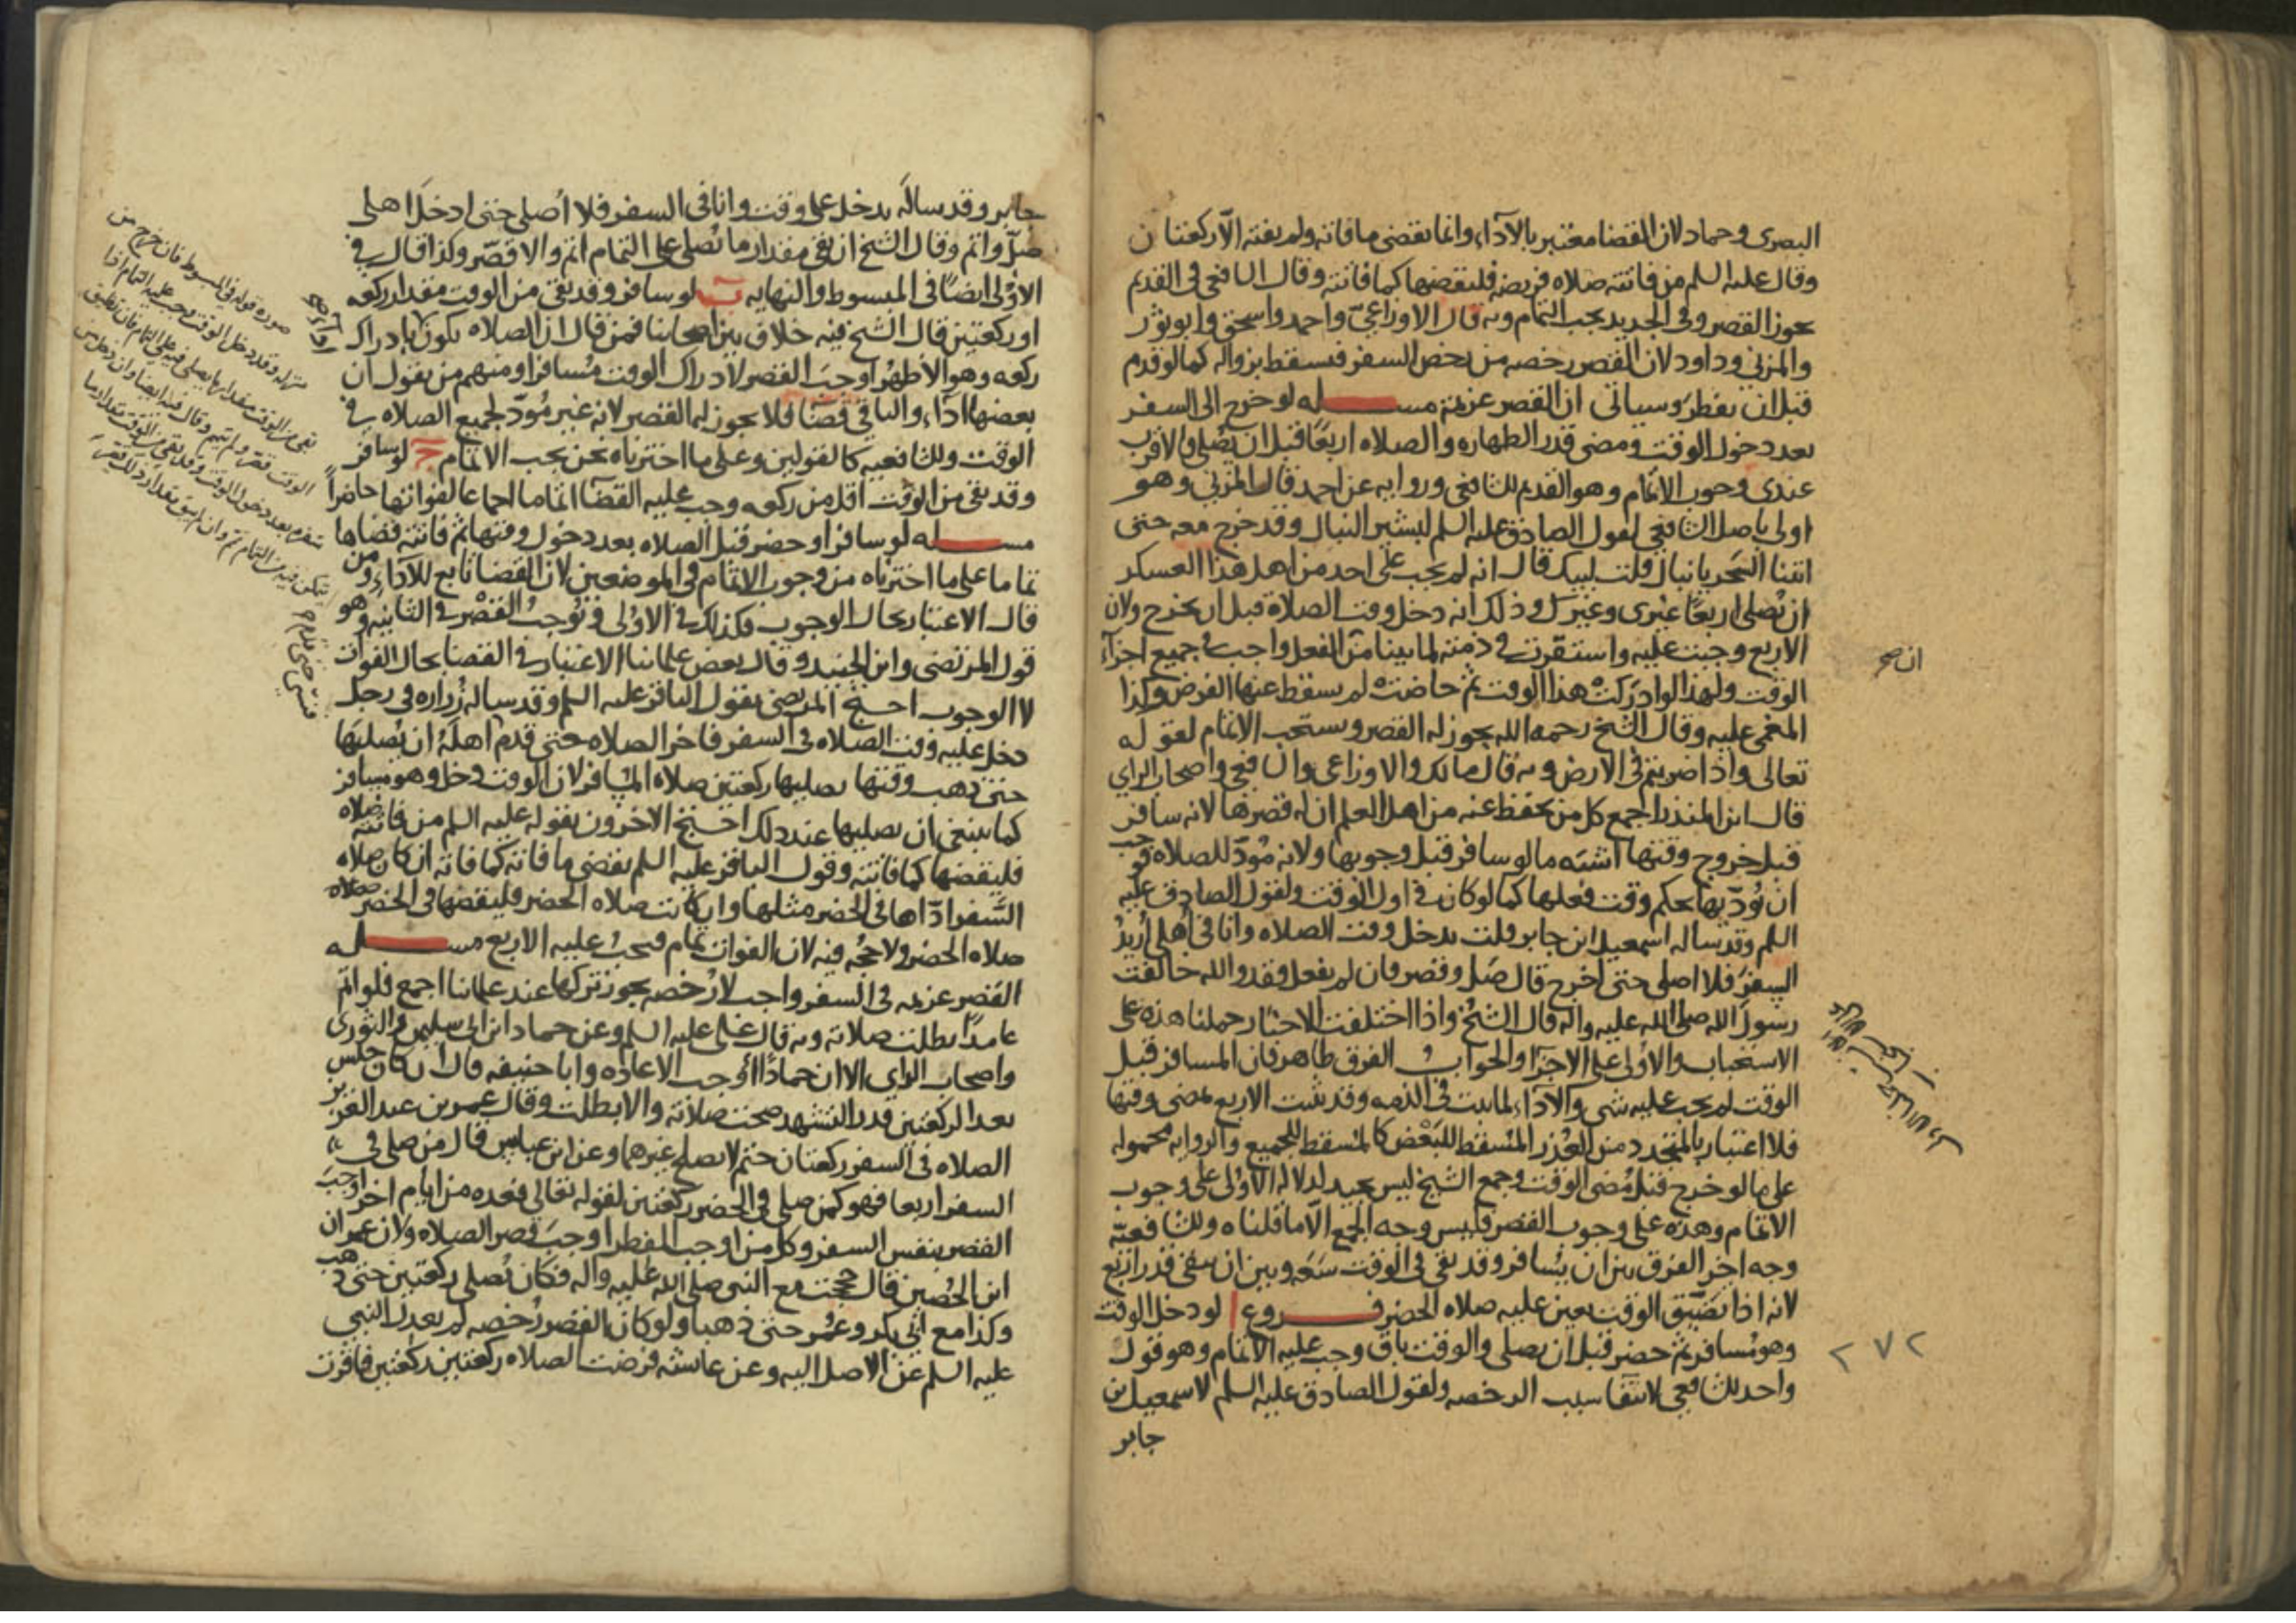 البصرى وحماد لان القضا معتبر بالآداء وانما يقضى ما فاته ولم يفته الّا ركعتان
وقال عليه السلم من فاتته صلاه فريضه فليقضها كما فاتته وقال الشافعى فى القديم
يجوز القصر وفى الجديد يجب التمام وبه قال الاوزاعىّ واحمد واسحق وابو ثور
والمزنى وداود لان القصر رخصه من رخص السفر فسقط بزواله كما لو قدم
قبل ان يفطر وسياتى ان القصر عزيمة مسله لو خرج الى السفر
بعد دخول الوقت ومضى قدر الطهاره والصلاه اربعًا قبل ان يُصلى فالاقرب
عندى وجوب الاتمام وهو القديم للشافعى وروايه عن احمد قال المزنى وهو
اولى باصل الشافعى لقول الصادق عليه السلم لبشير النبال وقد خرج معه حتى
اتينا الشجره يا نبال قلت لبيك قال انه لم يجب على احد من اهل هذا العسكر
ان يُصلى اربعًا غيرى وغيرك وذلك انه دخل وقت الصلاة قبل ان يخرج ولان
الاربع وجبت عليه واستقرّت فى ذمته لما بينا من الفعل واجب فى جميع اجزآء
ان صح
الوقت ولهذا لو ادركت هذا الوقت ثم حاضت لم يسقط عنها الفرض وكذا
المغمى عليه وقال الشيخ رحمه الله يجوز له القصر ويستحب الاتمام لقوله
تعالى واذا ضربتم فى الارض وبه قال مالك والاوزاعى والشافعى واصحاب الراي
قال ابن المنذر اجمع كل من يحفظ عنه من اهل العلم ان له قصرها لانه سافر
قبل خروج وقتها اشبه ما لو سافر قبل وجوبها ولانه مُودّ للصلاه فوجب
ان يُودّيها بحكم وقت فعلها كما لو كان فى اول الوقت ولقول الصادق عليه
السلم وقد ساله اسمعيل ابن جابر قلت يدخل وقت الصلاه وانا فى اهلى أريدُ
السفرَ فلا اصلى حتى اخرج قال صَل وقصر فان لم يفعل فقد والله خالفت
رسولَ الله صلى الله عليه واله قال الشيخ واذا اختلفت الاخبار حملنا هذه على
الاستحباب والاولى على الاجزآ والجواب الفرق ظاهر فان المسافر قبل
الوقت لم يجب عليه شى والآداء لما يثبت فى الذمه وقد ثبت الاربع لمضى وقتها
فلا اعتبار بالمتجدد من العُذر المُسقط للبَعْض كالمُسقط للجميع والروايه محموله
على ما لو خرج قبل مُضى الوقت وجمع الشيخ ليس بجيد لدلاله الاولى على وجوب
الاتمام وهذه على وجوب القصر فليس وجه الجمع الّا ما قلناه وللشافعيّة
وجه اخر الفرق بين ان يُسافر وقد بقى فى الوقت سَعَه وبين ان يبقى قدر اربع
لانه اذا تضيّق الوقت تعين عليه صلاه الحضر فروع ا لو دخل الوقت
وهو مُسافر ثم حضر قبل ان يصلى والوقت باق وجب عليه الاتمام وهو قول
٢٧٢
واحد للشافعى لانتفا سبب الرخصه ولقول الصادق عليه السلم لاسمعيل بن
جابر
جابر وقد سالَه يدخل على وقت وانا فى السفر فلا اُصلى حتى ادخلَ اهلى
صلّ واتم وقال الشيخ ان بقى مقدار ما يُصلى على التمام اتم والا قصّر وكذا قال فى
الاوْلى ايضًا فى المبسوط والنهايه ب لو سافر وقد بقى من الوقت مقدار ركعه
او ركعتين قال الشيخ فيه خلاف بين اصحابنا فمن قال ان الصلاه تكون بادراك
ركعه وهو الاظهرُ اوجبَ القصر لادراك الوقت مُسافرا ومنهم من يقول ان
بعضها اداء والباقى قضا فلا يجوز له القصر لانه غير مُودّ لجميع الصلاه فى
الوقت وللشافعيه كالقولين وعلى ما اخترناه نحن يجب الاتمام ج لو سافر
وقد بقى من الوقت اقل من ركعه وجب عليه القضآ اتماما اجماعا لفواتها حاضراً
مسله لو سافر او حضر قبل الصلاه بعد دخول وقتها ثم فاتته قضاها
تماما على ما اخترناه من وجوب الاتمام فى الموضعين لان القضا تابع للآداء ومن
قال الاعتبار بحال الوجوب فكذلك فى الاوْلى ويُوجبُ القصْر فى الثانيه وهو
قول المرتضى وابن الجنيد وقال بعض علمائنا الاعتبار فى القضا بحال الفوات
لا الوجوب احتج المرتضى بقول الباقر عليه السلم وقد ساله زُراره فى رجل
دخل عليه وقت الصلاه فى السفر فاخر الصلاه حتى قدم اهلَهُ ان يُصليَها
حتى ذهب وقتها يصليها ركعتين صلاه المسافر لان الوقت دخل وهو مسافر
كما ينبغى ان يصليها عند ذلك احتج الاخرون بقوله عليه السلم من فاتته صلاه
فليقضها كما فاتته وقول الباقر عليه السلم يقضى ما فاته كما فاته ان كان صلاه
السَّفر ادّاها فى الحضر مثلها وان كانت صلاه الحضر فليقضها فى الحضر صلاه
صلاه الحضر ولا حجّه فيه لان الفوات تمام فيجبُ عليه الاربع مسله
القصر عزيمه فى السفر واجب لا رُخصه يجوز تركها عند علمائنا اجمع فلو اتم
عامدًا بطلت صلاته وبه قال على عليه السلم وعن حماد ابن ابى سليمن والثورى
واصحاب الراى الا ان حمادًا اوجب الاعاده وابا حنيفه قال ان كان جلس
بعد الركعتين قدر التشهد صحت صلاته والا بطلت وقال عمر بن عبد العزيز
الصلاه فى السفر ركعتان حتم لا يصلح غيرهما وعن ابن عباس قال من صلى فى
السفر اربعا فهو كمن صلى فى الحضر ركعتين لقوله تعالى فعده من ايام اخر اوجبَ
القصر بنفس السفر وكل من اوجب الفطر اوجبَ قصر الصلاه ولان عمران
ابن الحُصين قال حججت مع النبى صلى الله عليه واله فكان يُصلى ركعتين حتى ذهب
وكذا مع ابى بكر وعُمر حتى ذهبا ولو كان القصر رُخصه لم يعدل النبى
عليه السلم عن الاصل اليه وعن عايشه فرضت الصلاه ركعتين ركعتين فاقرت
صوره قوله فى المبسوط فان خرج من
منزله وقد دخل الوقت وجب عليه التمام اذا
بقى من الوقت مقدار ما يصلى فيه على التمام فان تضيق
الوقت قصّر ولم يتم وقال فيه ايضا وان دخل من
سفره بعد دخول الوقت وقد بقى من الوقت مقدار ما
يتمكن فيه من التمام تمّ وان لم يبق مقدار ذلك قصّر